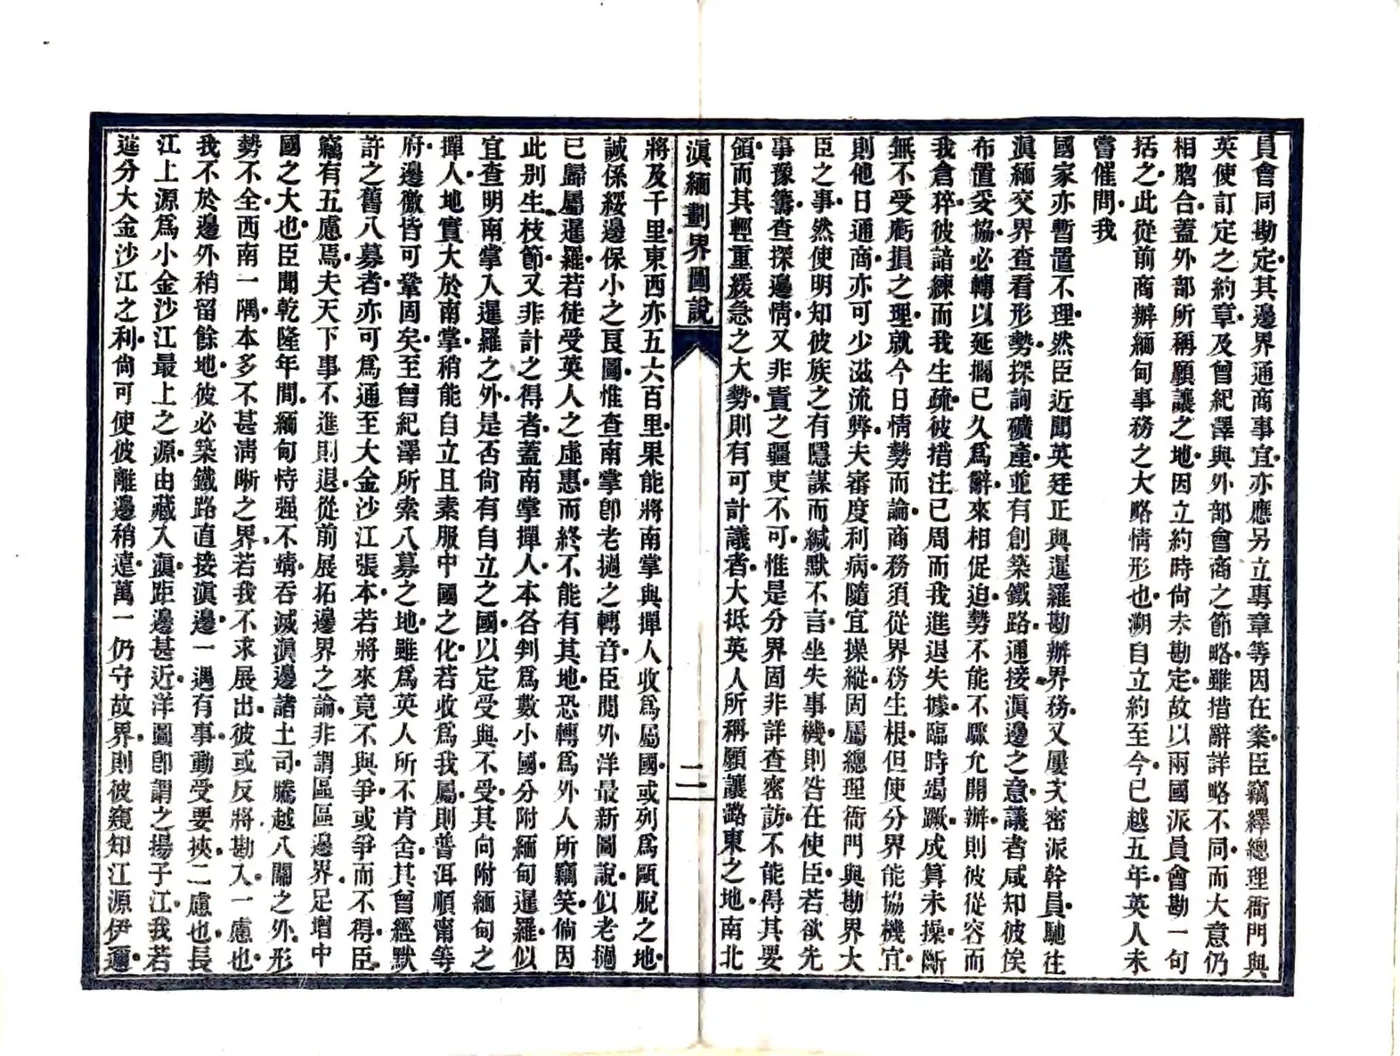 員會同勘定其邊界通商事宜亦應另立專章等因在案臣竊繹總理衙門與
英使訂定之約章及曾紀澤與外部會商之節略雖措辭詳略不同而大意仍
相脗合蓋外部所稱願讓之地因立約時尚未勘定故以兩國派員會勘一句
括之此從前商辦緬甸事務之大略情形也溯自立約至今已越五年英人未
嘗催問我
國家亦暫置不理然臣近聞英廷正與暹羅勘辦界務又屢次密派幹員馳往
滇緬交界查看形勢探詢礦產並有創築鐵路通接滇邊之意議者咸知彼俟
布置妥協必轉以延擱已久爲辭來相促迫勢不能不驟允開辦則彼從容而
我倉猝彼諳練而我生疏彼措注已周而我進退失據臨時竭蹶成算未操斷
無不受虧損之理就今日情勢而論商務須從界務生根但使分界能協機宜
則他日通商亦可少滋流弊夫審度利病隨宜操縱固屬總理衙門與勘界大
臣之事然使明知彼族之有隱謀而緘默不言坐失事機則咎在使臣若欲先
事豫籌查探邊情又非責之疆吏不可惟是分界固非詳查密訪不能得其要
領而其輕重緩急之大勢則有可計議者大抵英人所稱願讓潞東之地南北
滇緬劃界圖說
二
將及千里東西亦五六百里果能將南掌與撣人收爲屬國或列爲甌脫之地
誠係綏邊保小之良圖惟查南掌卽老撾之轉音臣閱外洋最新圖說似老撾
已歸屬暹羅若徒受英人之虛惠而終不能有其地恐轉爲外人所竊笑倘因
此別生枝節又非計之得者蓋南掌撣人本各判爲數小國分附緬甸暹羅似
宜查明南掌入暹羅之外是否尚有自立之國以定受與不受其向附緬甸之
撣人地實大於南掌稍能自立且素服中國之化若收爲我屬則普洱順甯等
府邊徼皆可鞏固矣至曾紀澤所索八募之地雖爲英人所不肯舍其曾經默
許之舊八募者亦可爲通至大金沙江張本若將來竟不與爭或爭而不得臣
竊有五慮焉夫天下事不進則退從前展拓邊界之論非謂區區邊界足增中
國之大也臣聞乾隆年間緬甸恃强不靖吞滅滇邊諸土司騰越八關之外形
勢不全西南一隅本多不甚淸晰之界若我不求展出彼或反將勘入一慮也
我不於邊外稍留餘地彼必築鐵路直接滇邊一遇有事動受要挾二慮也長
江上源爲小金沙江最上之源由藏入滇距邊甚近洋圖卽謂之揚子江我若
進分大金沙江之利尚可使彼離邊稍遠萬一仍守故界則彼窺知江源伊邇